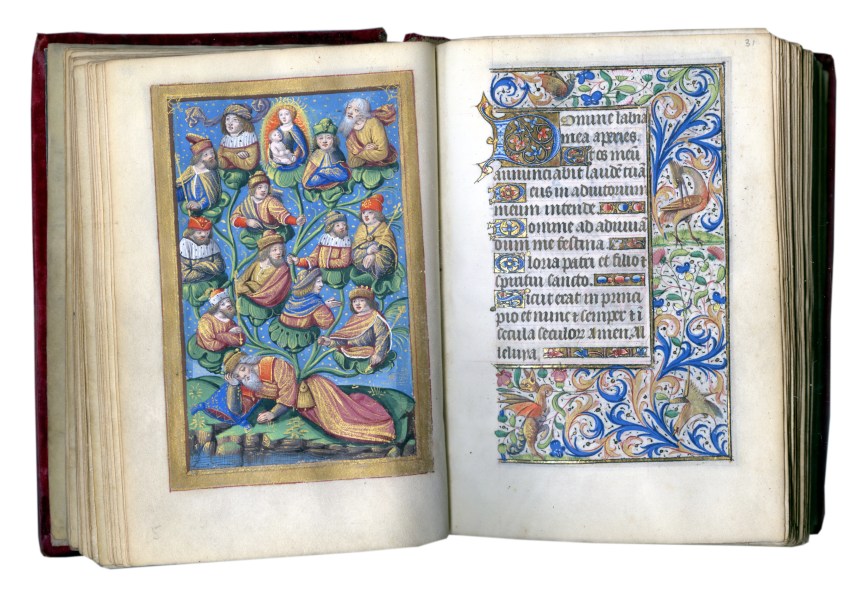 31
Domine labia
mea aperies.
Et os meu
annunciabit laudē tuā
Deus in adiutorium
meum intende.
Domine ad adiuuā
dum me festina.
Gloria patri et filio ⁊
spiritui sancto.
Sicut erat in princi
pio et nunc ⁊ semper ⁊ ī
secula seculor Amen Al
leluya.